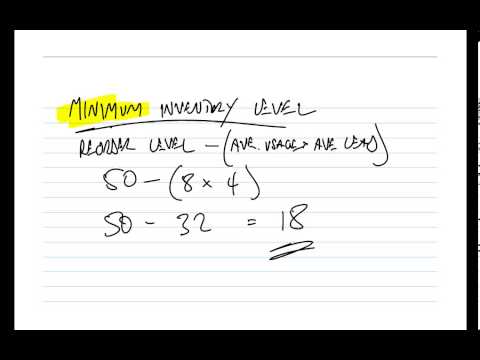 MINIMUM INVENTORY LEVEL
REORDER LEVEL - (AVE. USAGE × AVE LEAD)
50 - (8 × 4)
50 - 32 = 18